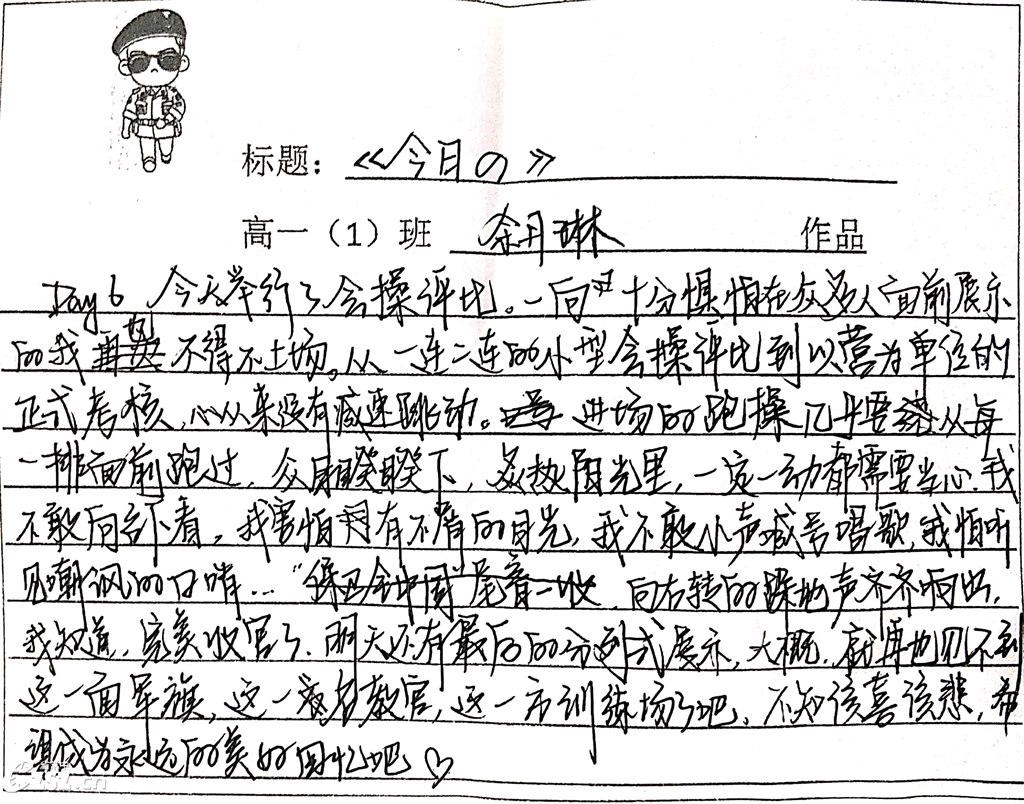 标题：《今日の》
高一（1）班 余月琳 作品
Day 6 今天举行了会操评比。一向十分惧怕在众多人面前展示
的我 不得不上场。从一连二连的小型会操评比到以营为单位的
正式考核，心从来没有减速跳动。进场的跑操几乎要从每
一排面前跑过，众目睽睽下，炎热阳光里，一定一动都需要当心。我
不敢向台下看，我害怕有不屑的目光，我不敢小声喊号唱歌，我怕听
见嘲讽的口哨…"保卫全中国"尾音一收，向右转的踩地声齐齐响出，
我知道，完美收官了。明天还有最后的分列式展示，大概，就再也见不到
这一面军旗，这一教官，这一方训练场了吧。不知该喜该悲，希
望成为永远的美好回忆吧♡